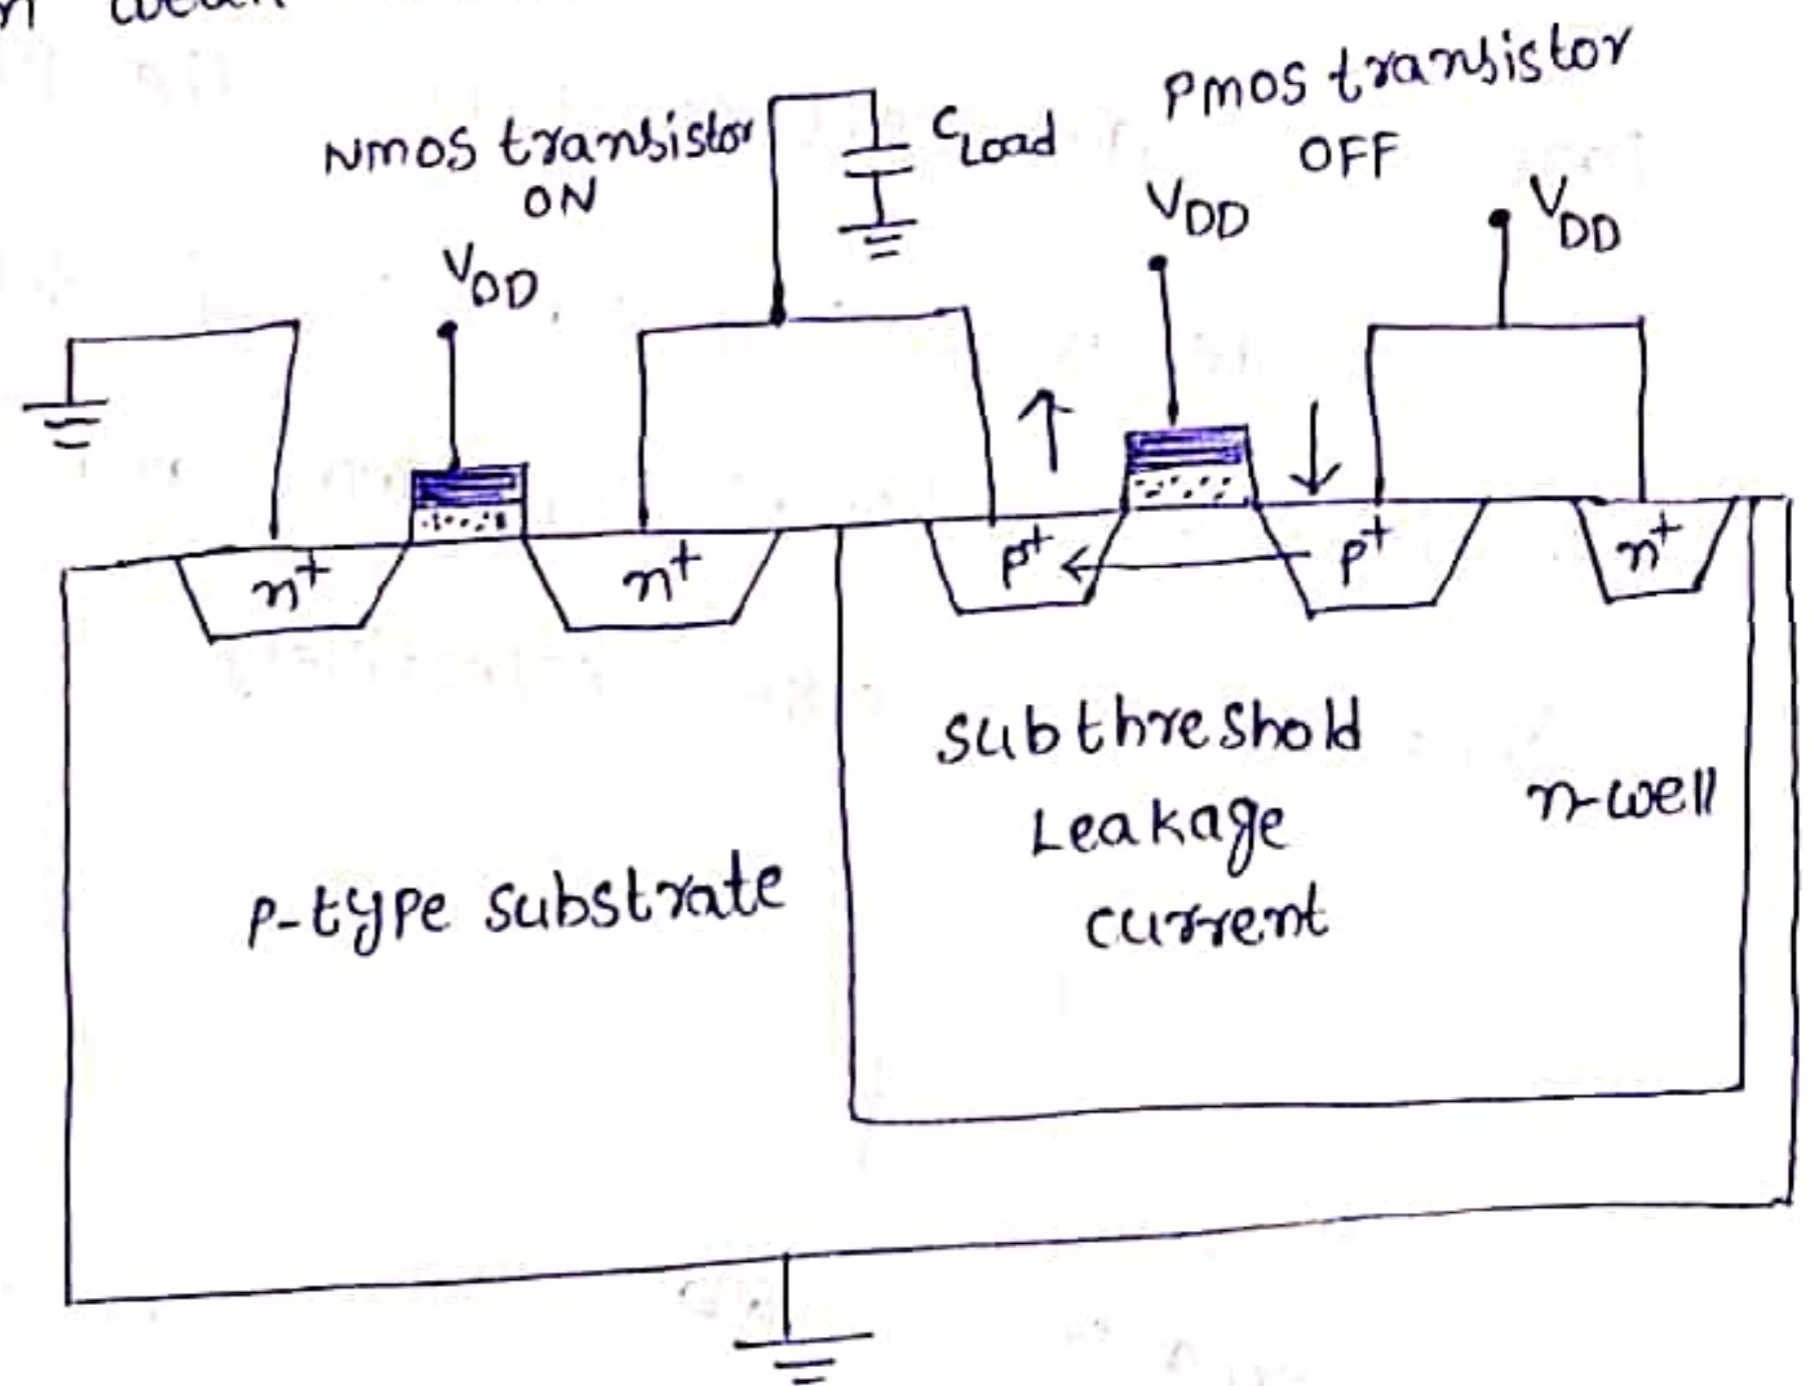 weak
NMOS transistor
ON
C Load
PMOS transistor
OFF
VDD
VDD
VDD
n+
n+
p+
p+
n+
subthreshold
Leakage
current
n-well
P-type substrate